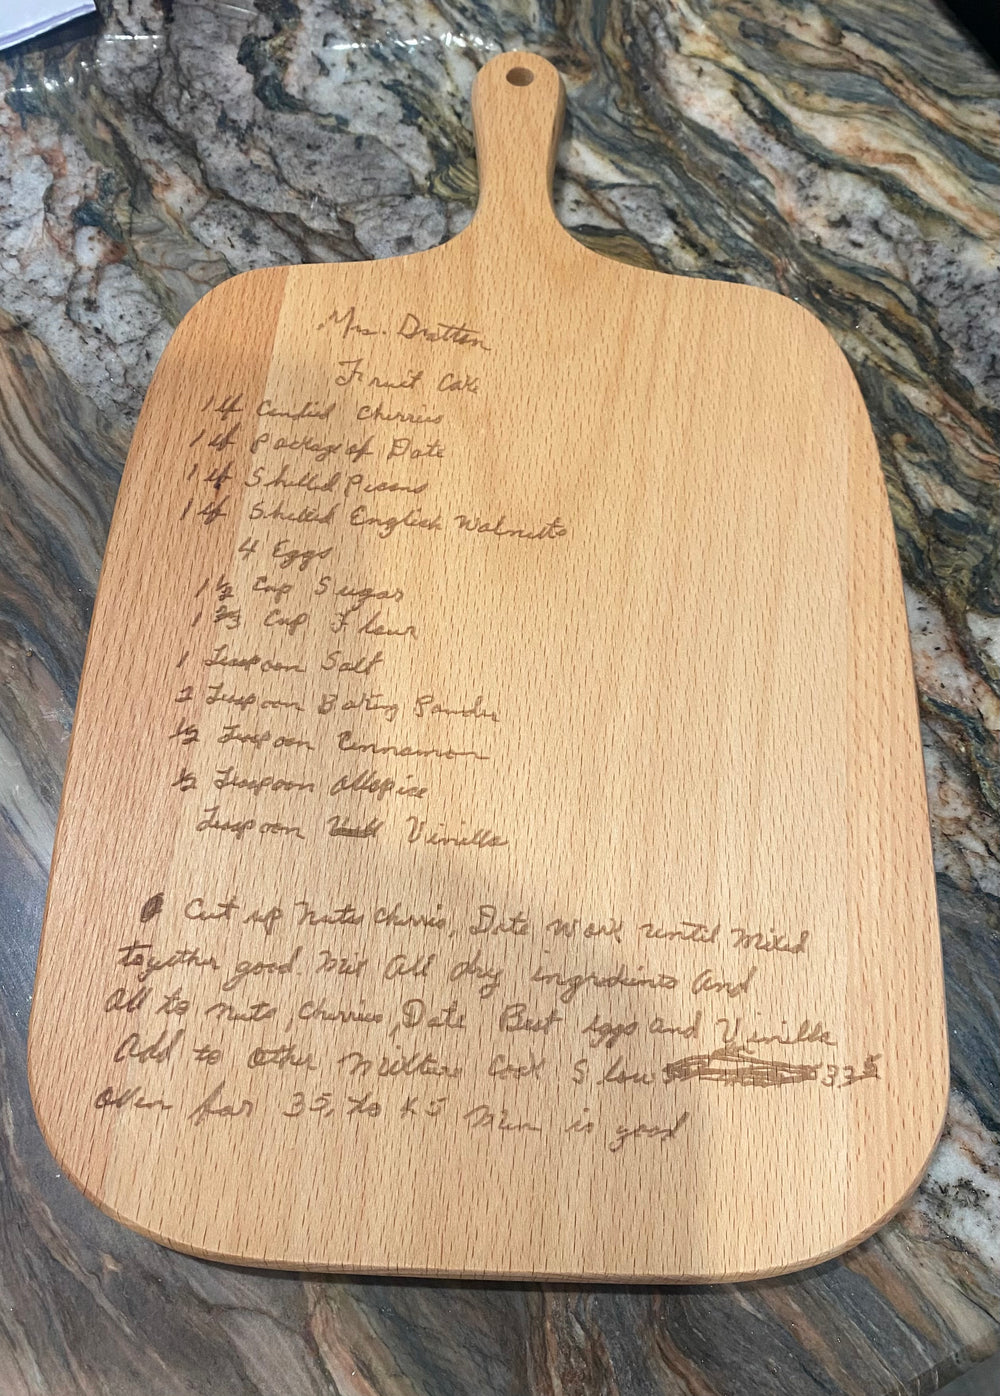 Mrs. Dratton
Fruit Cake
1 lb Candied Cherries
1 lb Package of Date
1 lb Shelled Picans
1 lb Shelled English Walnuts
4 Eggs
1 1/2 Cup Sugar
1 2/3 Cup Flour
1 Teaspoon Salt
2 Teaspoon Baking Powder
1/2 Teaspoon Cinnamon
1/2 Teaspoon Allspice
Teaspoon Vinilla
Cut up Nuts Cherris, Date Work until Mixed
together good. Mix All dry ingredients And
All to nuts, Cherries, Date Beat Eggs and Vinilla
Add to Other Mixture Cook Slow 325
Oven for 35, to 45 Min is good